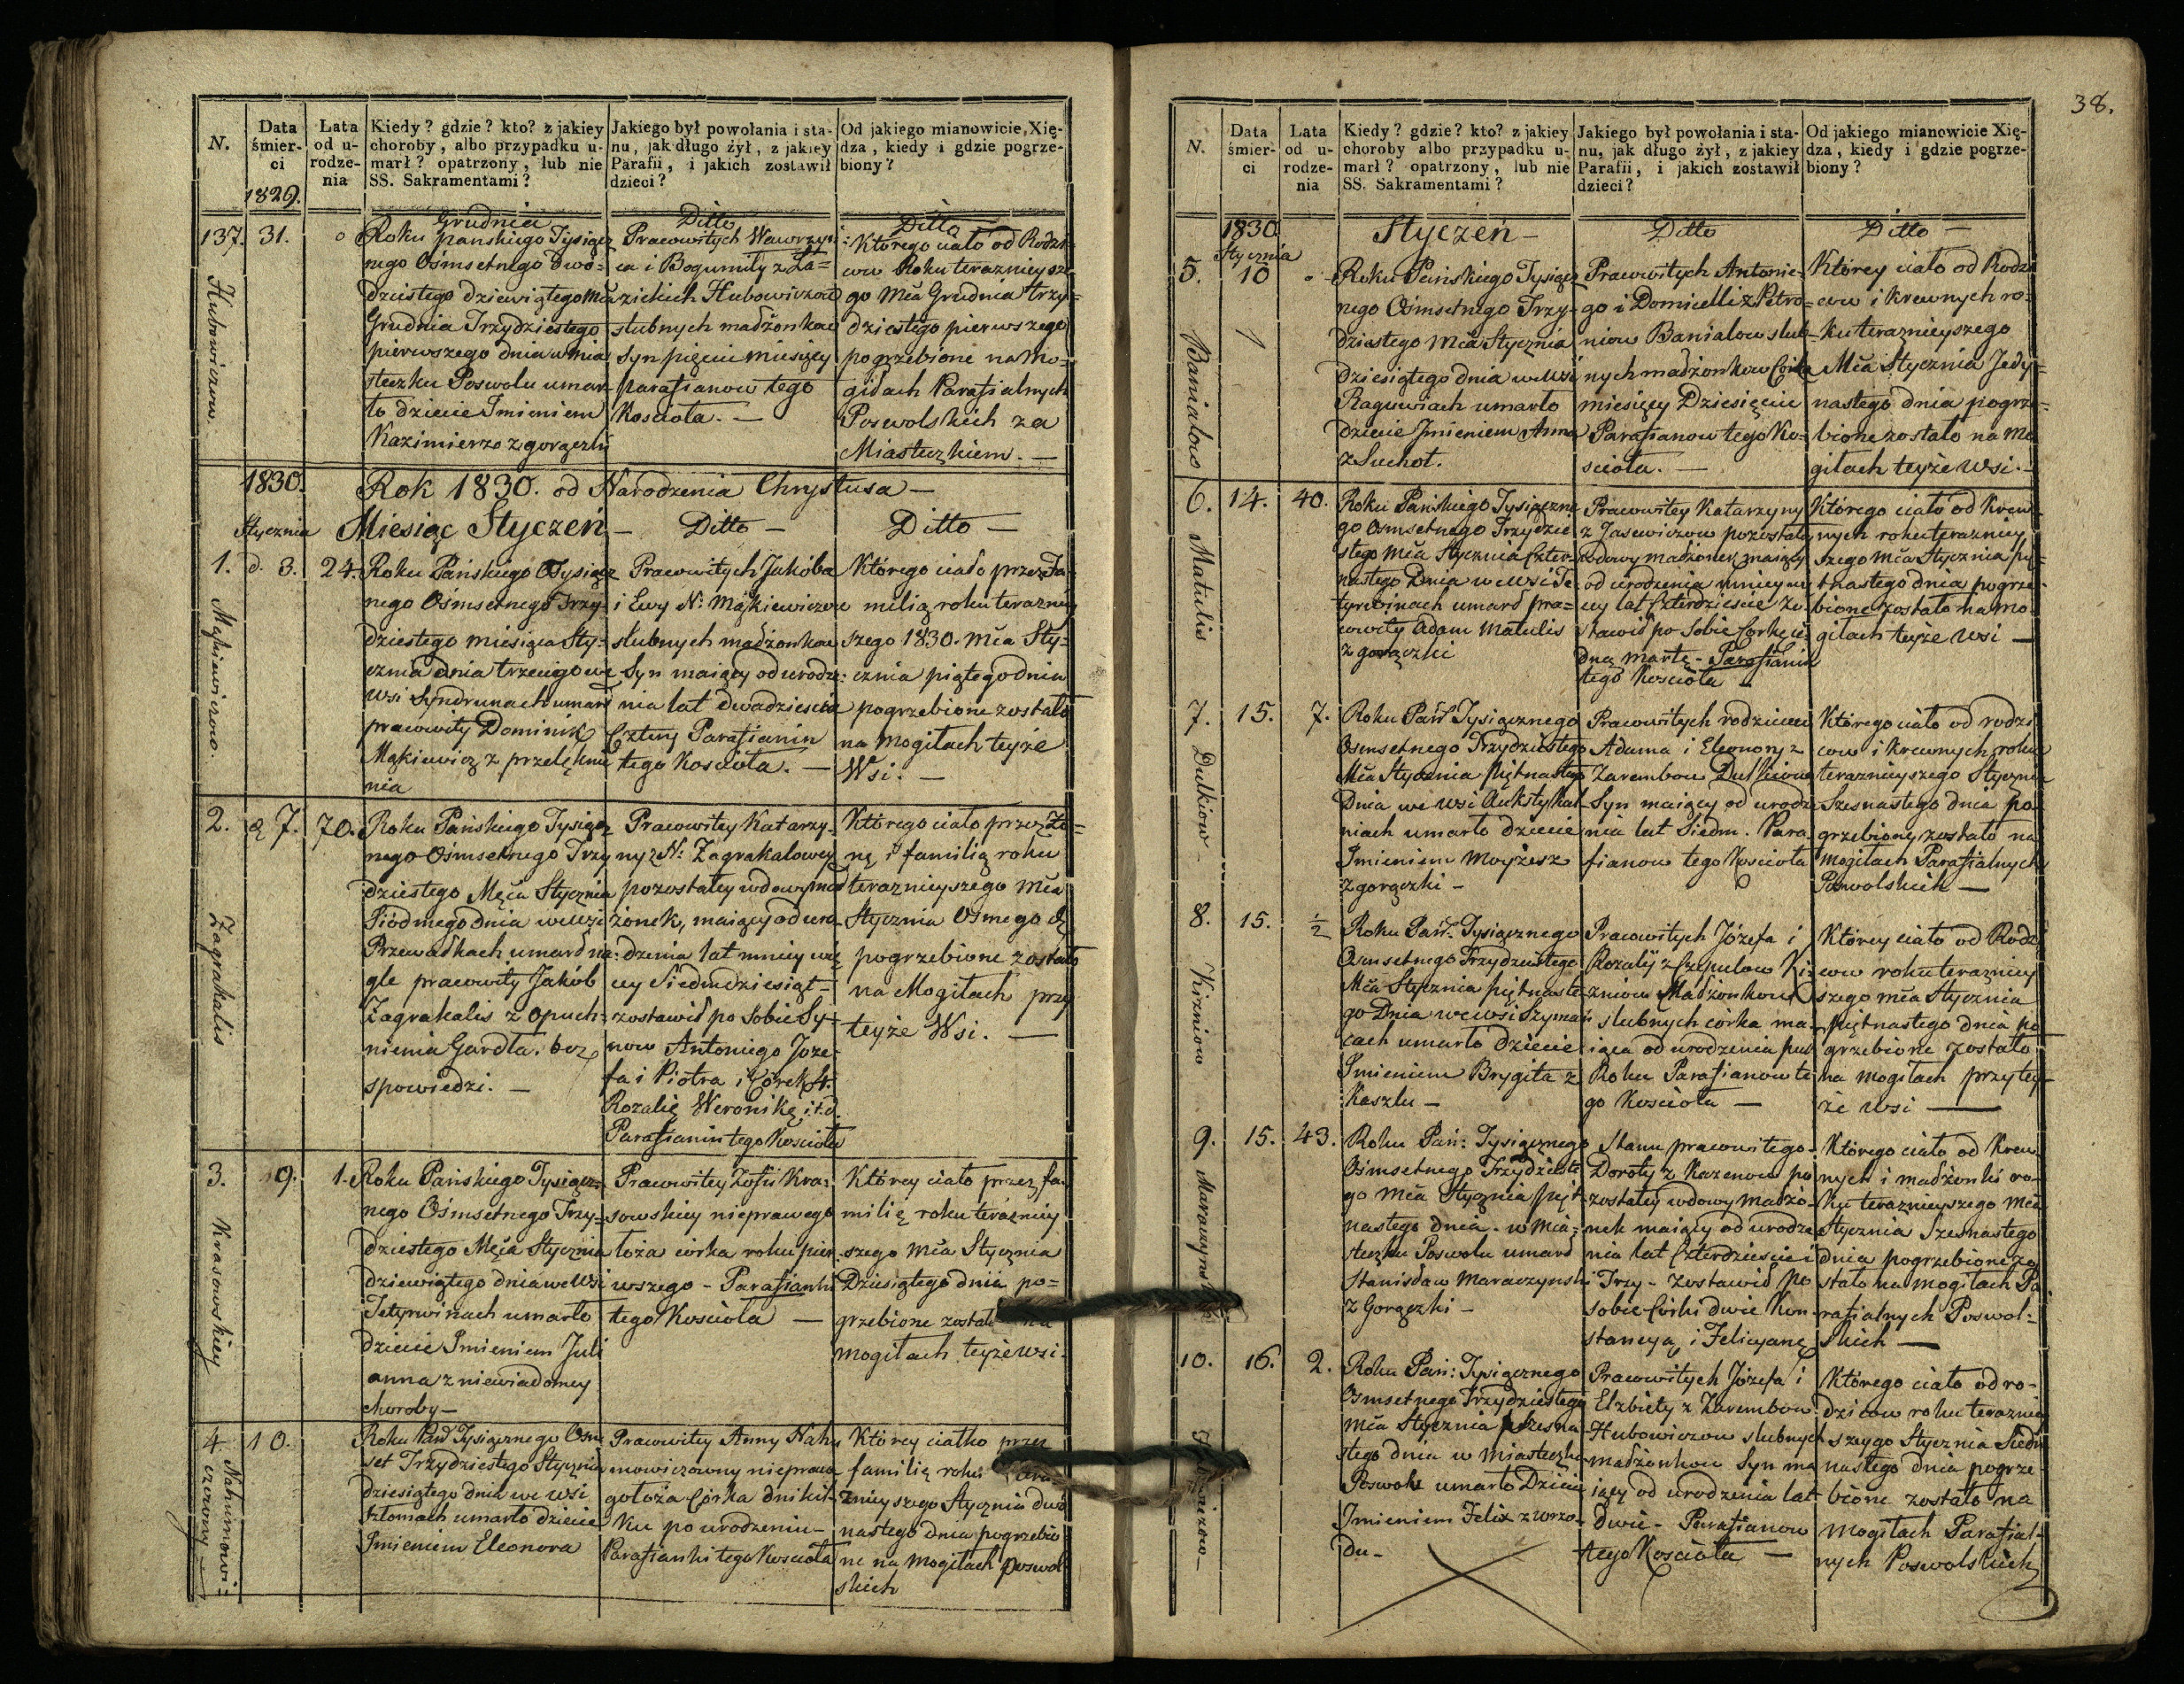 N.
Data śmier- ci
1829.
Lata od u- rodze- nia
Kiedy? gdzie? kto? z jakiey
choroby, albo przypadku u-
marł? opatrzony, lub nie
SS. Sakramentami?
Jakiego był powołania i sta-
nu, jak długo żył, z jakiey
Parafii, i jakich zostawił
dzieci?
Od jakiego mianowicie, Xię-
dza, kiedy i gdzie pogrze-
biony?
137.
31.
0
Hubowiczow.
Grudnia
Roku panskiego Tysiącz
nego Ośmsetnego dwó-
dziestego dziewiątego Mca
Grudnia Trzydziestego
pierwszego dnia w mia
steczku Poswolu umar
ło dziecie Imieniem
Kazimierz z gorączki
Ditto
Pracowitych Wawrzyń
ca i Bogumiły z Ła=
zickich Hubowiczow
slubnych madżonkow
Syn pięciu miesięcy
parafianow tego
Koscioła. —
Ditto
Którego ciało od Rodzi
cow Roku teraznieysze
go Mca Grudnia trzy=
dziestego pierwszego
pogrzebione na Mo-
giłach Parafialnych
Poswolskich za
Miasteczkiem. —
1830.
Rok 1830. od Narodzenia Chrystusa —
Stycznia
Miesiąc Styczeń — Ditto — Ditto —
1.
d. 3.
24.
Mąkiewiczow.
Roku Pańskiego Tysiącz
nego Ośmsetnego Trzy-
dziestego miesiąca Sty-
cznia dnia trzeciego we
Wsi Syndrunach umarł
pracowity Dominik
Mąkiewicz z przelęknie
nia
Pracowitych Jakóba
i Ewy N: Mąkiewiczow
slubnych madżonkow
Syn maiący od urodze
nia lat dwadziescia
Cztery Parafianin
tego Koscioła. —
Którego ciało przez Fa-
milią roku teraznieÿ
szego 1830. Mca Sty-
cznia piątego dnia
pogrzebione zostało
na Mogiłach teyże
Wsi. —
2.
d 7.
70.
Zagrakalis
Roku Pańskiego Tysiącz
nego Ośmsetnego Trzy
dziestego Męca Stycznia
Siódmego dnia we wsi
Przewałkach umarł na-
gle pracowity Jakób
Zagrakalis z Opuch-
nienia Gardła. bez
spowiedzi. —
Pracowitey Katarzy-
ny z N: Zagrakalowey
pozostałey wdowy mad
żonek, maiący od uro
dzenia lat mniey wię
cy Siedmdziesiąt -
zostawił po Sobie Sy-
now Antoniego Joze-
fa i Piotra i Córek
Rozalię Weronikę i t.d.
Parafianin tego Kościoła
Którego ciało przez Żo-
nę i familią roku
teraznieyszego Mca
Stycznia Osmego d.
pogrzebione zostało
na Mogiłach przy
teyże Wsi. —
3.
9.
1.
Krasowskiey
Roku Pańskiego Tysiącz-
nego Ośmsetnego Trzy-
dziestego Męca Stycznia
dziewiątego dnia we Wsi
Tetyrwinach umarło
dziecie Imieniem Juli
anna z niewiadomey
choroby —
Pracowitey Zofii Kra-
sowskiey nieprawego
łoża córka roku pier
wszego - Parafianki
tego Kosciola —
Którey ciało przez fa-
milię roku teraźniey
szego Mca Stycznia
Dziesiątego dnia po=
grzebione zostało na
mogiłach teyże wsi.
4.
10.
Nahumowi-
czowny —
Roku Pań Tysiącznego Osm
set Trzydziestego Stycznia
dziesiątego dnia we wsi
umarło dziecie
Imieniem Eleonora
Pracowitey Anny Nahu
mowiczowny niepraw
go łoża Córka dni kil
ku po urodzeniu -
Parafianki tego Kosciola
Którey ciałko przez
familię roku tera
źnieyszego Stycznia dwó
nastego dnia pogrzebio
ne na mogiłach poswol
skich
38.
N.
Data śmier- ci
Lata od u- rodze- nia
Kiedy? gdzie? kto? z jakiey
choroby albo przypadku u-
marł? opatrzony, lub nie
SS. Sakramentami?
Jakiego był powołania i sta-
nu, jak długo żył, z jakiey
Parafii, i jakich zostawił
dzieci?
Od jakiego mianowicie Xię-
dza, kiedy i gdzie pogrze-
biony?
1830
Stycznia
Styczeń —
Ditto
Ditto —
5.
10
Banialow
Roku Pańskiego Tysiącz
nego Ośmsetnego Trzy-
dziestego Mca Stycznia
dziesiątego dnia we wsi
Raguwiach umarło
dziecie Imieniem Anna
z Suchot.
Pracowitych Antonie-
go i Domicelli z Petro-
niow Banialow slub-
nych madżonkow Córka
miesięcy Dziesięciu
Parafianow tego Ko-
scioła. —
Którey ciało od Rodzi
cow i Krewnych ro-
ku teraznieyszego
Mca Stycznia Jedy-
nastego dnia pogrze-
bione zostało na Mo
giłach teyże Wsi. —
6.
14.
40.
Matulis
Roku Pańskiego Tysiączne
go Osmsetnego Trzydzie
stego Mca Stycznia Czter-
nastego Dnia we Wsi Te
tyrwinach umarł pra=
cowity Adam Matulis
z gorączki
Pracowitey Katarzyny
z Jasewiczow pozostałey
wdowy madżonek maiący
od urodzenia mniey wię
cy lat Czterdziescie Zo
stawił po Sobie Corkę ie
dnę Martę - Parafianin
tego Kosciola —
Którego ciało od Krew
nych roku teraznieÿ
szego Mca Stycznia pię-
tnastego dnia pogrze-
bione zostało na mo
giłach teyże Wsi —
7.
15.
7.
Dulkiow —
Roku Pań Tysiącznego
Osmsetnego Trzydziestego
Mca Stycznia Piętnastego
Dnia we wsi Aukstykal
niach umarło dziecie
Imieniem Moyżesz
z gorączki —
Pracowitych rodzicow
Adama i Eleonory z
Zarembow Dulkiow
Syn maiący od urodze
nia lat Siedm. Para
fianow tego Kościoła
Którego ciało od rodzi
cow i Krewnych roku
teraznieyszego Stycznia
Szesnastego dnia po-
grzebiony zostało na
Mogiłach Parafialnych
Poswolskich —
8.
15.
1/2
Kizniow
Roku Pań. Tysiącznego
Osmsetnego Trzydziestego
Mca Stycznia piętnaste
go Dnia we wsi Szymań
cach umarło dziecie
Imieniem Brygita z
Kaszlu —
Pracowitych Józefa i
Rozalij z Czepulow Ki-
zniow Madżonkow
slubnych córka ma-
iąca od urodzenia puł
Roku Parafianow te
go Kościoła —
Którey ciało od Rodzi
cow roku teraznieÿ
szego mca Stycznia
piętnastego dnia po
grzebione zostało
na mogiłach przy tey
że wsi —
9.
15.
43.
Roku Pań: Tysiącznego
Ośmsetnego Trzydzieste
go Mca Stycznia pięt
nastego dnia. w mia-
steczku Poswolu umarł
Stanisław Maraczynski
z Gorączki —
Stanu pracowitego
Doroty z Kazenow po
zostałey wdowy madżo-
nek maiący od urodze
nia lat Czterdziescie i
Trzy - zostawił po
sobie Córki dwie Kon-
stancyą i Felicyanę
Którego ciało od Krew
nych i madżonki ro-
ku teraznieyszego Mca
Stycznia Szesnastego
dnia pogrzebione zo
stało na mogiłach Pa
rafialnych Poswol-
skich —
10.
16.
2.
Roku Pań: Tysiącznego
Osmsetnego Trzydziestego
Mca Stycznia Szesna
stego dnia w miasteczku
Poswolu umarło Dziecie
Imieniem Felix z wrzo-
du —
Pracowitych Józefa i
Elzbiety z Zarembow
Hubowiczow slubnych
madżonkow Syn ma
iący od urodzenia lat
dwie - Parafianow
tego Kościoła —
Którego ciało od ro-
dzicow roku teraznieÿ
szego Stycznia Siedm
nastego dnia pogrze
bione zostało na
Mogiłach Parafial-
nych Poswolskich